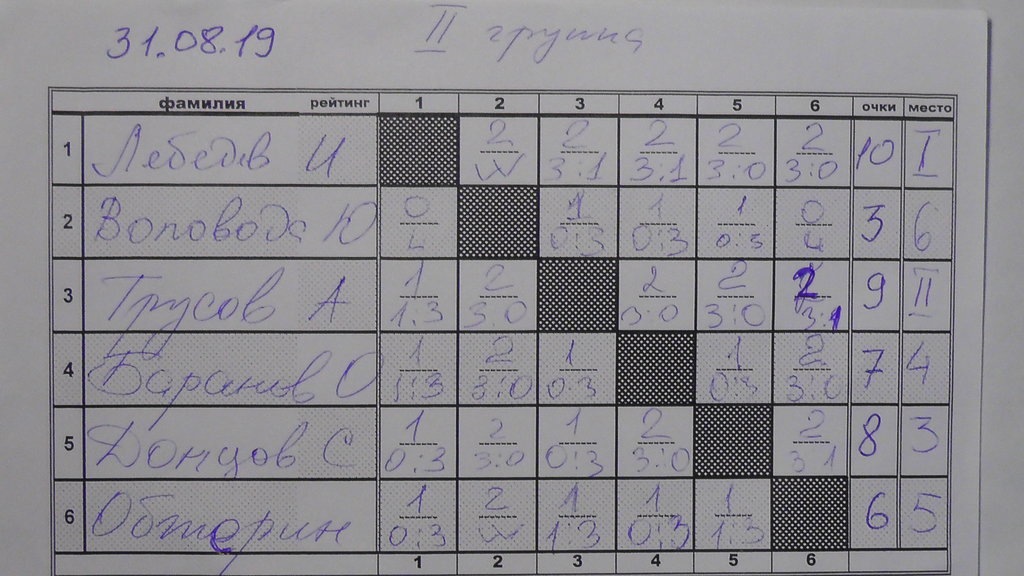 31.08.19 II группа
фамилия рейтинг 1 2 3 4 5 6 очки место
1 Лебедев И 2 2 2 2 2 10 I
W 3:1 3:1 3:0 3:0
2 Воловода Ю 0 1 1 1 0 3 6
L 0:3 0:3 0:3 L
3 Трусов А 1 2 2 2 2 9 II
1:3 3:0 3:0 3:0 3:1
4 Баранов О 1 2 1 1 2 7 4
1:3 3:0 0:3 0:3 3:0
5 Донцов С 1 2 1 2 2 8 3
0:3 3:0 0:3 3:0 3:1
6 1 2 1 1 1 6 5
0:3 W 1:3 0:3 1:3
1 2 3 4 5 6